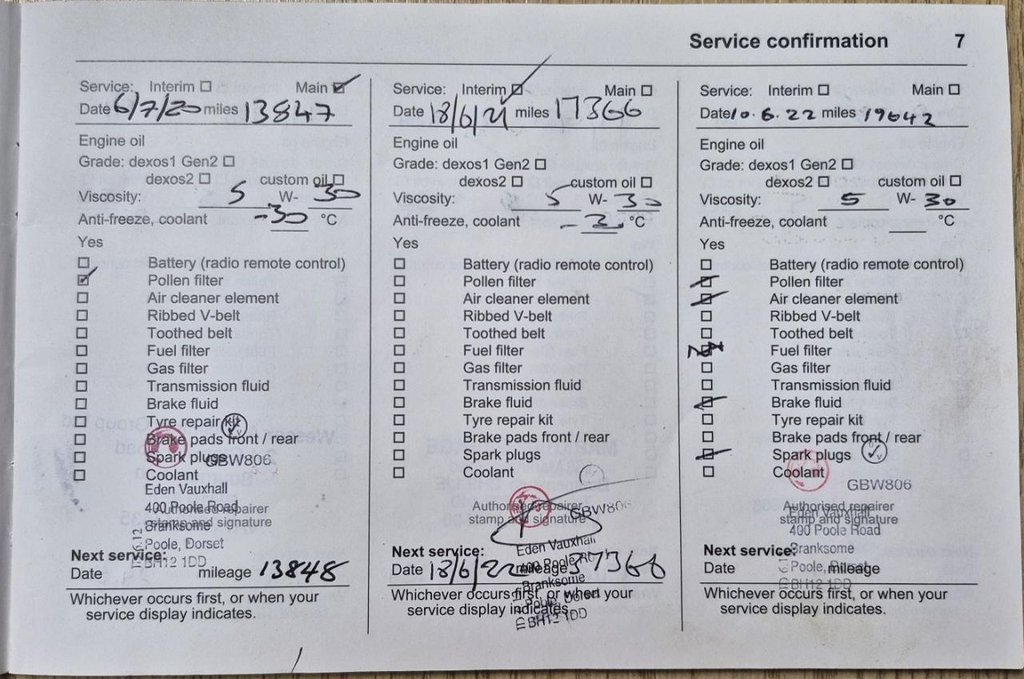 Service confirmation 7
Service: Interim Main
Date 6/7/20 miles 13847
Engine oil
Grade: dexos1 Gen2
dexos2 custom oil
Viscosity: 5 W- 30
Anti-freeze, coolant -30 °C
Yes
Battery (radio remote control)
Pollen filter
Air cleaner element
Ribbed V-belt
Toothed belt
Fuel filter
Gas filter
Transmission fluid
Brake fluid
Tyre repair kit
Brake pads front / rear
Spark plugs
GBW806
Coolant
Eden Vauxhall
400 Poole Road
Authorised repairer
Branksome
stamp and signature
Poole, Dorset
BH12 1DD
Next service:
Date mileage 13848
Whichever occurs first, or when your
service display indicates.
Service: Interim Main
Date 18/6/21 miles 17366
Engine oil
Grade: dexos1 Gen2
dexos2 custom oil
Viscosity: 5 W- 30
Anti-freeze, coolant °C
Yes
Battery (radio remote control)
Pollen filter
Air cleaner element
Ribbed V-belt
Toothed belt
Fuel filter
Gas filter
Transmission fluid
Brake fluid
Tyre repair kit
Brake pads front / rear
Spark plugs
Coolant
Authorised repairer
GBW806
stamp and signature
Eden Vauxhall
Next service:
400 Poole Rd
Date 18/6/22 mileage 37366
Branksome
Whichever occurs first, or when your
Poole, Dorset
service display indicates.
BH12 1DD
Service: Interim Main
Date 10.6.22 miles 19642
Engine oil
Grade: dexos1 Gen2
dexos2 custom oil
Viscosity: 5 W- 30
Anti-freeze, coolant °C
Yes
Battery (radio remote control)
Pollen filter
Air cleaner element
Ribbed V-belt
Toothed belt
Fuel filter
Gas filter
Transmission fluid
Brake fluid
Tyre repair kit
Brake pads front / rear
Spark plugs
Coolant
GBW806
Authorised repairer
Eden Vauxhall
stamp and signature
400 Poole Road
Branksome
Next service:
Poole, Dorset
Date mileage
BH12 1DD
Whichever occurs first, or when your
service display indicates.